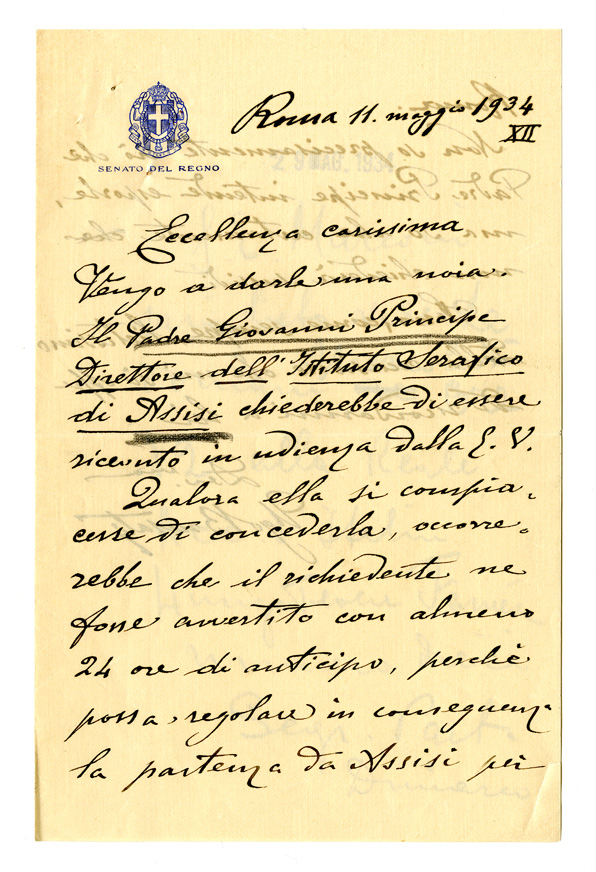 Roma 11. maggio 1934
XII
SENATO DEL REGNO
29 MAG. 1934
Eccellenza carissima
Vengo a darle una noia.
Il Padre Giovanni Principe
Direttore dell'Istituto Serafico
di Assisi chiederebbe di essere
ricevuto in udienza dalla E. V.
Qualora ella si compia-
cesse di concederla, occorre-
rebbe che il richiedente ne
fosse avvertito con almeno
24 ore di anticipo, perchè
possa regolare in conseguenza
la partenza da Assisi per